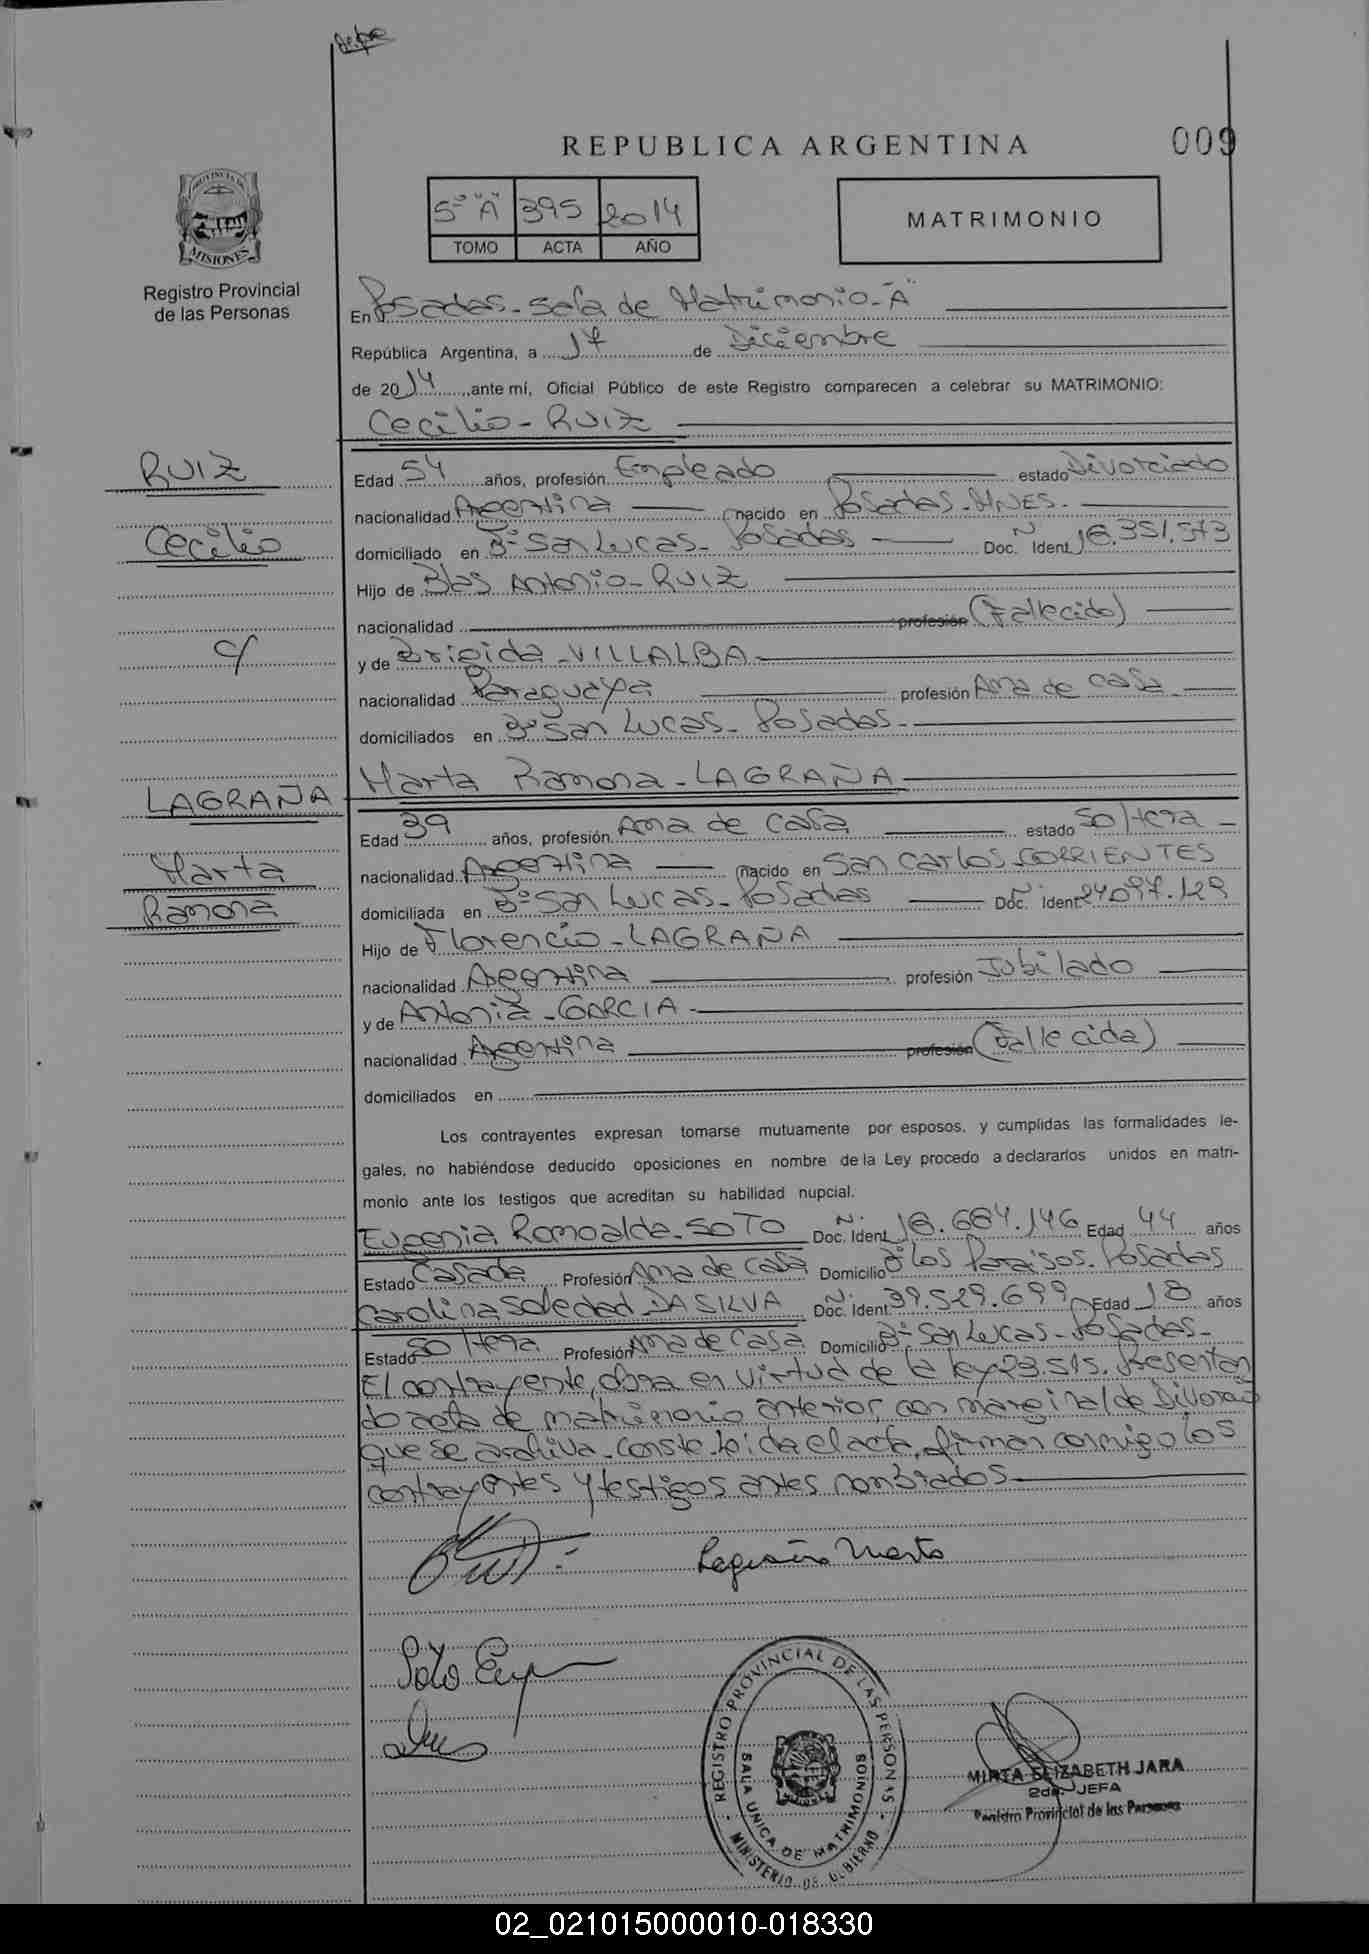 009
REPUBLICA ARGENTINA
5º "A" 395 2014
TOMO ACTA AÑO
MATRIMONIO
PROVINCIA DE MISIONES
Registro Provincial
de las Personas
En Posadas - Sala de Matrimonio - "A"
República Argentina, a 17 de Diciembre
de 2014 ante mí, Oficial Público de este Registro comparecen a celebrar su MATRIMONIO:
Cecilio - RUIZ
RUIZ
Cecilio
c/
LAGRAÑA
Marta
Ramona
Edad 54 años, profesión Empleado estado Divorciado
nacionalidad Argentina nacido en Posadas - MNES.
domiciliado en Bº San Lucas - Posadas Doc. Ident. Nº 16.351.573
Hijo de Blas Antonio - RUIZ
nacionalidad profesión (Fallecido)
y de Brigida - VILLALBA
nacionalidad Paraguaya profesión Ama de casa
domiciliados en Bº San Lucas - Posadas -
Marta Ramona - LAGRAÑA
Edad 39 años, profesión Ama de casa estado Soltera -
nacionalidad Argentina nacido en San Carlos - CORRIENTES
domiciliada en Bº San Lucas - Posadas Doc. Ident. Nº 24.097.129
Hijo de Florencio - LAGRAÑA
nacionalidad Argentina profesión Jubilado
y de Antonia - GARCIA -
nacionalidad Argentina profesión (Fallecida)
domiciliados en
Los contrayentes expresan tomarse mutuamente por esposos, y cumplidas las formalidades le-
gales, no habiéndose deducido oposiciones en nombre de la Ley procedo a declararlos unidos en matri-
monio ante los testigos que acreditan su habilidad nupcial.
Eugenia Romoalda - SOTO Doc. Ident. Nº 18.684.146 Edad 44 años
Estado Casada Profesión Ama de casa Domicilio Bº Los Paraisos - Posadas
Carolina Soledad - DA SILVA Doc. Ident. Nº 39.529.699 Edad 18 años
Estado Soltera Profesión Ama de casa Domicilio Bº San Lucas - Posadas -
El contrayente, obra en virtud de la ley 23.515. Presentan
do acta de matrimonio anterior, con marginal de Divorcio
que se archiva - conste - leida el acta, firman conmigo los
contrayentes y testigos antes nombrados
Lagraña Marta
Soto Eug
REGISTRO PROVINCIAL DE LAS PERSONAS
SALA UNICA DE MATRIMONIOS
MINISTERIO DE GOBIERNO
MIRTA ELIZABETH JARA
2da. JEFA
Registro Provincial de las Personas
02_021015000010-018330